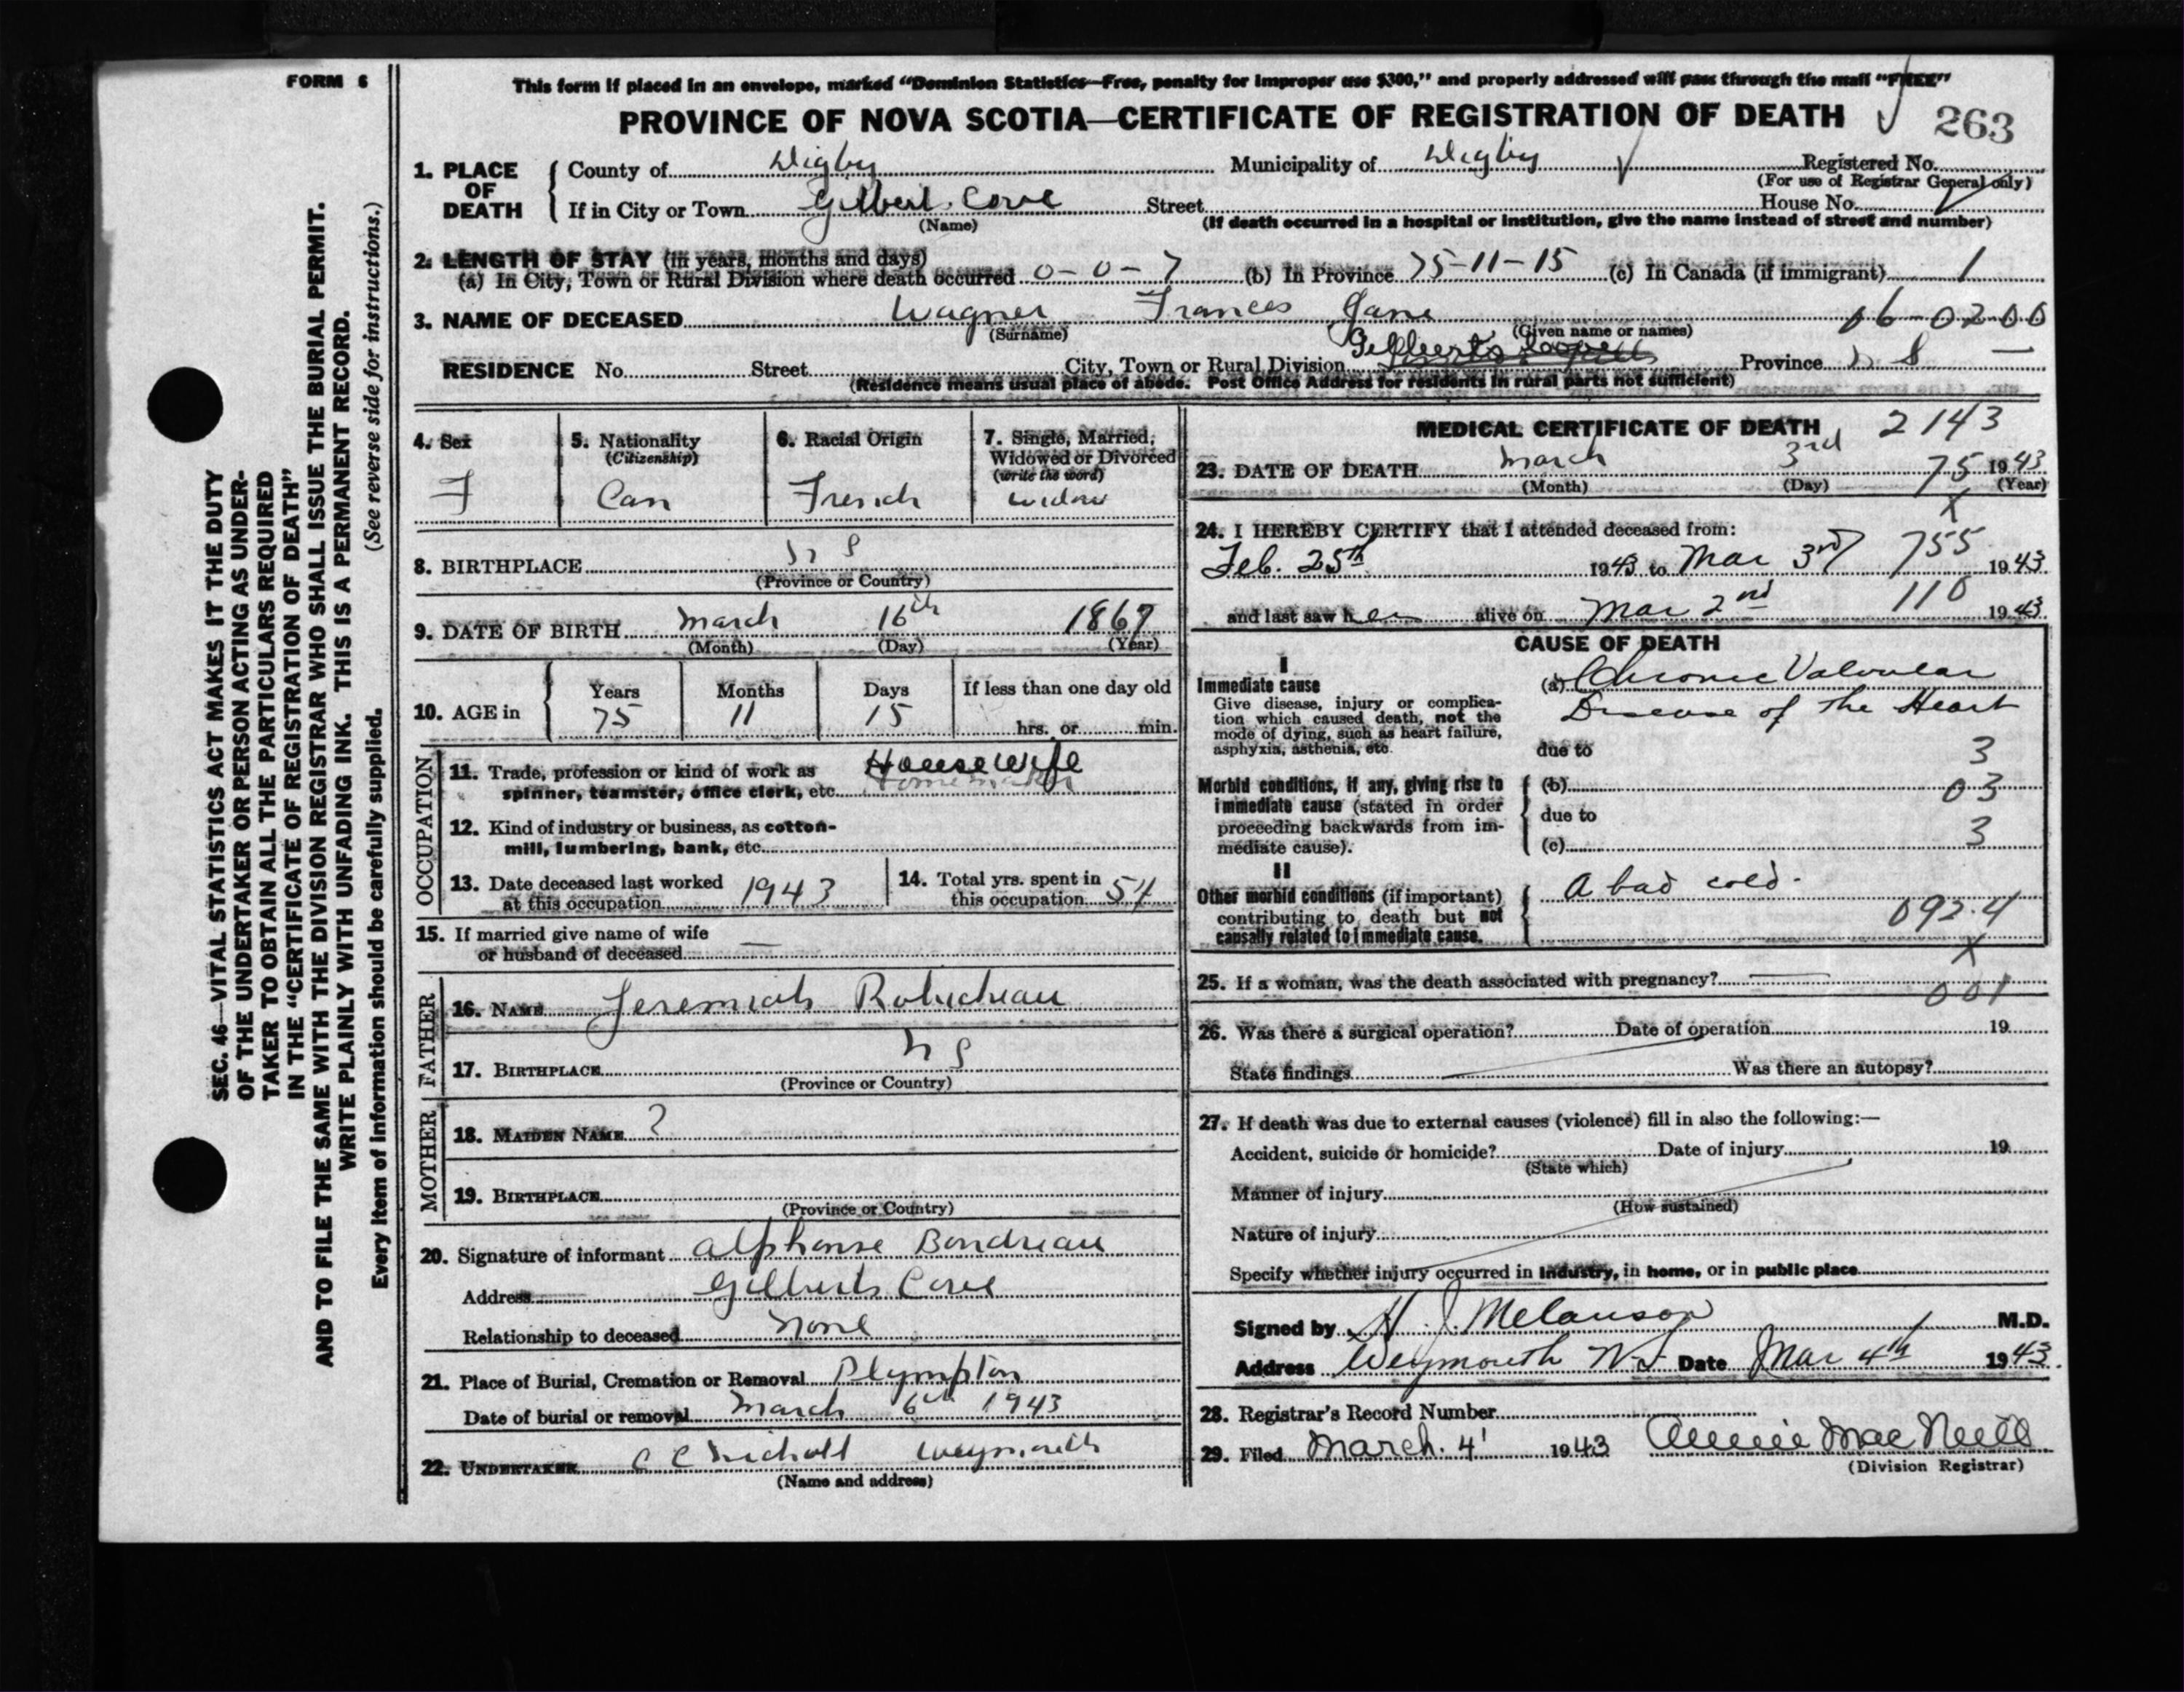 FORM 6
This form if placed in an envelope, marked "Dominion Statistics—Free, penalty for improper use $300," and properly addressed will pass through the mail "FREE"
PROVINCE OF NOVA SCOTIA—CERTIFICATE OF REGISTRATION OF DEATH 263
1. PLACE OF DEATH
County of Digby Municipality of Digby Registered No.
(For use of Registrar General only)
If in City or Town Gilbert Cove Street House No.
(Name) (If death occurred in a hospital or institution, give the name instead of street and number)
2. LENGTH OF STAY (in years, months and days)
(a) In City, Town or Rural Division where death occurred 0-0-7 (b) In Province 75-11-15 (c) In Canada (if immigrant) 1
3. NAME OF DECEASED Wagner Frances Jane 06-0200
(Surname) (Given name or names)
RESIDENCE No. Street City, Town or Rural Division Gilberts Cove Province N S —
(Residence means usual place of abode. Post Office Address for residents in rural parts not sufficient)
4. Sex F
5. Nationality (Citizenship) Can
6. Racial Origin French
7. Single, Married, Widowed or Divorced (write the word) widow
8. BIRTHPLACE N S
(Province or Country)
9. DATE OF BIRTH March 16th 1867
(Month) (Day) (Year)
10. AGE in Years 75 Months 11 Days 15 If less than one day old hrs. or min.
OCCUPATION
11. Trade, profession or kind of work as spinner, teamster, office clerk, etc. Housewife
12. Kind of industry or business, as cotton-mill, lumbering, bank, etc.
13. Date deceased last worked at this occupation 1943
14. Total yrs. spent in this occupation 54
15. If married give name of wife or husband of deceased —
FATHER
16. NAME Jeremiah Robicheau
17. BIRTHPLACE N S
(Province or Country)
MOTHER
18. MAIDEN NAME ?
19. BIRTHPLACE
(Province or Country)
20. Signature of informant Alphonse Boudreau
Address Gilberts Cove
Relationship to deceased none
21. Place of Burial, Cremation or Removal Plympton
Date of burial or removal March 6th 1943
22. UNDERTAKER C C Nicholl Weymouth
(Name and address)
MEDICAL CERTIFICATE OF DEATH 2143
23. DATE OF DEATH March 3rd 75 1943
(Month) (Day) (Year)
X
24. I HEREBY CERTIFY that I attended deceased from:
Feb. 25th 1943 to Mar 3rd 755 1943
and last saw her alive on Mar 2nd 110 1943
CAUSE OF DEATH
I
Immediate cause
Give disease, injury or complication which caused death, not the mode of dying, such as heart failure, asphyxia, asthenia, etc.
(a) Chronic Valvular
Disease of the Heart
due to 3
Morbid conditions, if any, giving rise to immediate cause (stated in order proceeding backwards from immediate cause).
(b) 03
due to
(c) 3
II
Other morbid conditions (if important) contributing to death but not causally related to immediate cause.
A bad cold.
092.4
X
25. If a woman, was the death associated with pregnancy? —
001
26. Was there a surgical operation? Date of operation 19
State findings Was there an autopsy?
27. If death was due to external causes (violence) fill in also the following:—
Accident, suicide or homicide? Date of injury 19
(State which)
Manner of injury
(How sustained)
Nature of injury
Specify whether injury occurred in industry, in home, or in public place
Signed by H. J Melanson M.D.
Address Weymouth N.S Date Mar 4th 1943.
28. Registrar's Record Number
29. Filed March. 4 1943 Annie MacNeill
(Division Registrar)
SEC. 46—VITAL STATISTICS ACT MAKES IT THE DUTY
OF THE UNDERTAKER OR PERSON ACTING AS UNDER-
TAKER TO OBTAIN ALL THE PARTICULARS REQUIRED
IN THE "CERTIFICATE OF REGISTRATION OF DEATH"
AND TO FILE THE SAME WITH THE DIVISION REGISTRAR WHO SHALL ISSUE THE BURIAL PERMIT.
WRITE PLAINLY WITH UNFADING INK. THIS IS A PERMANENT RECORD.
Every item of information should be carefully supplied. (See reverse side for instructions.)